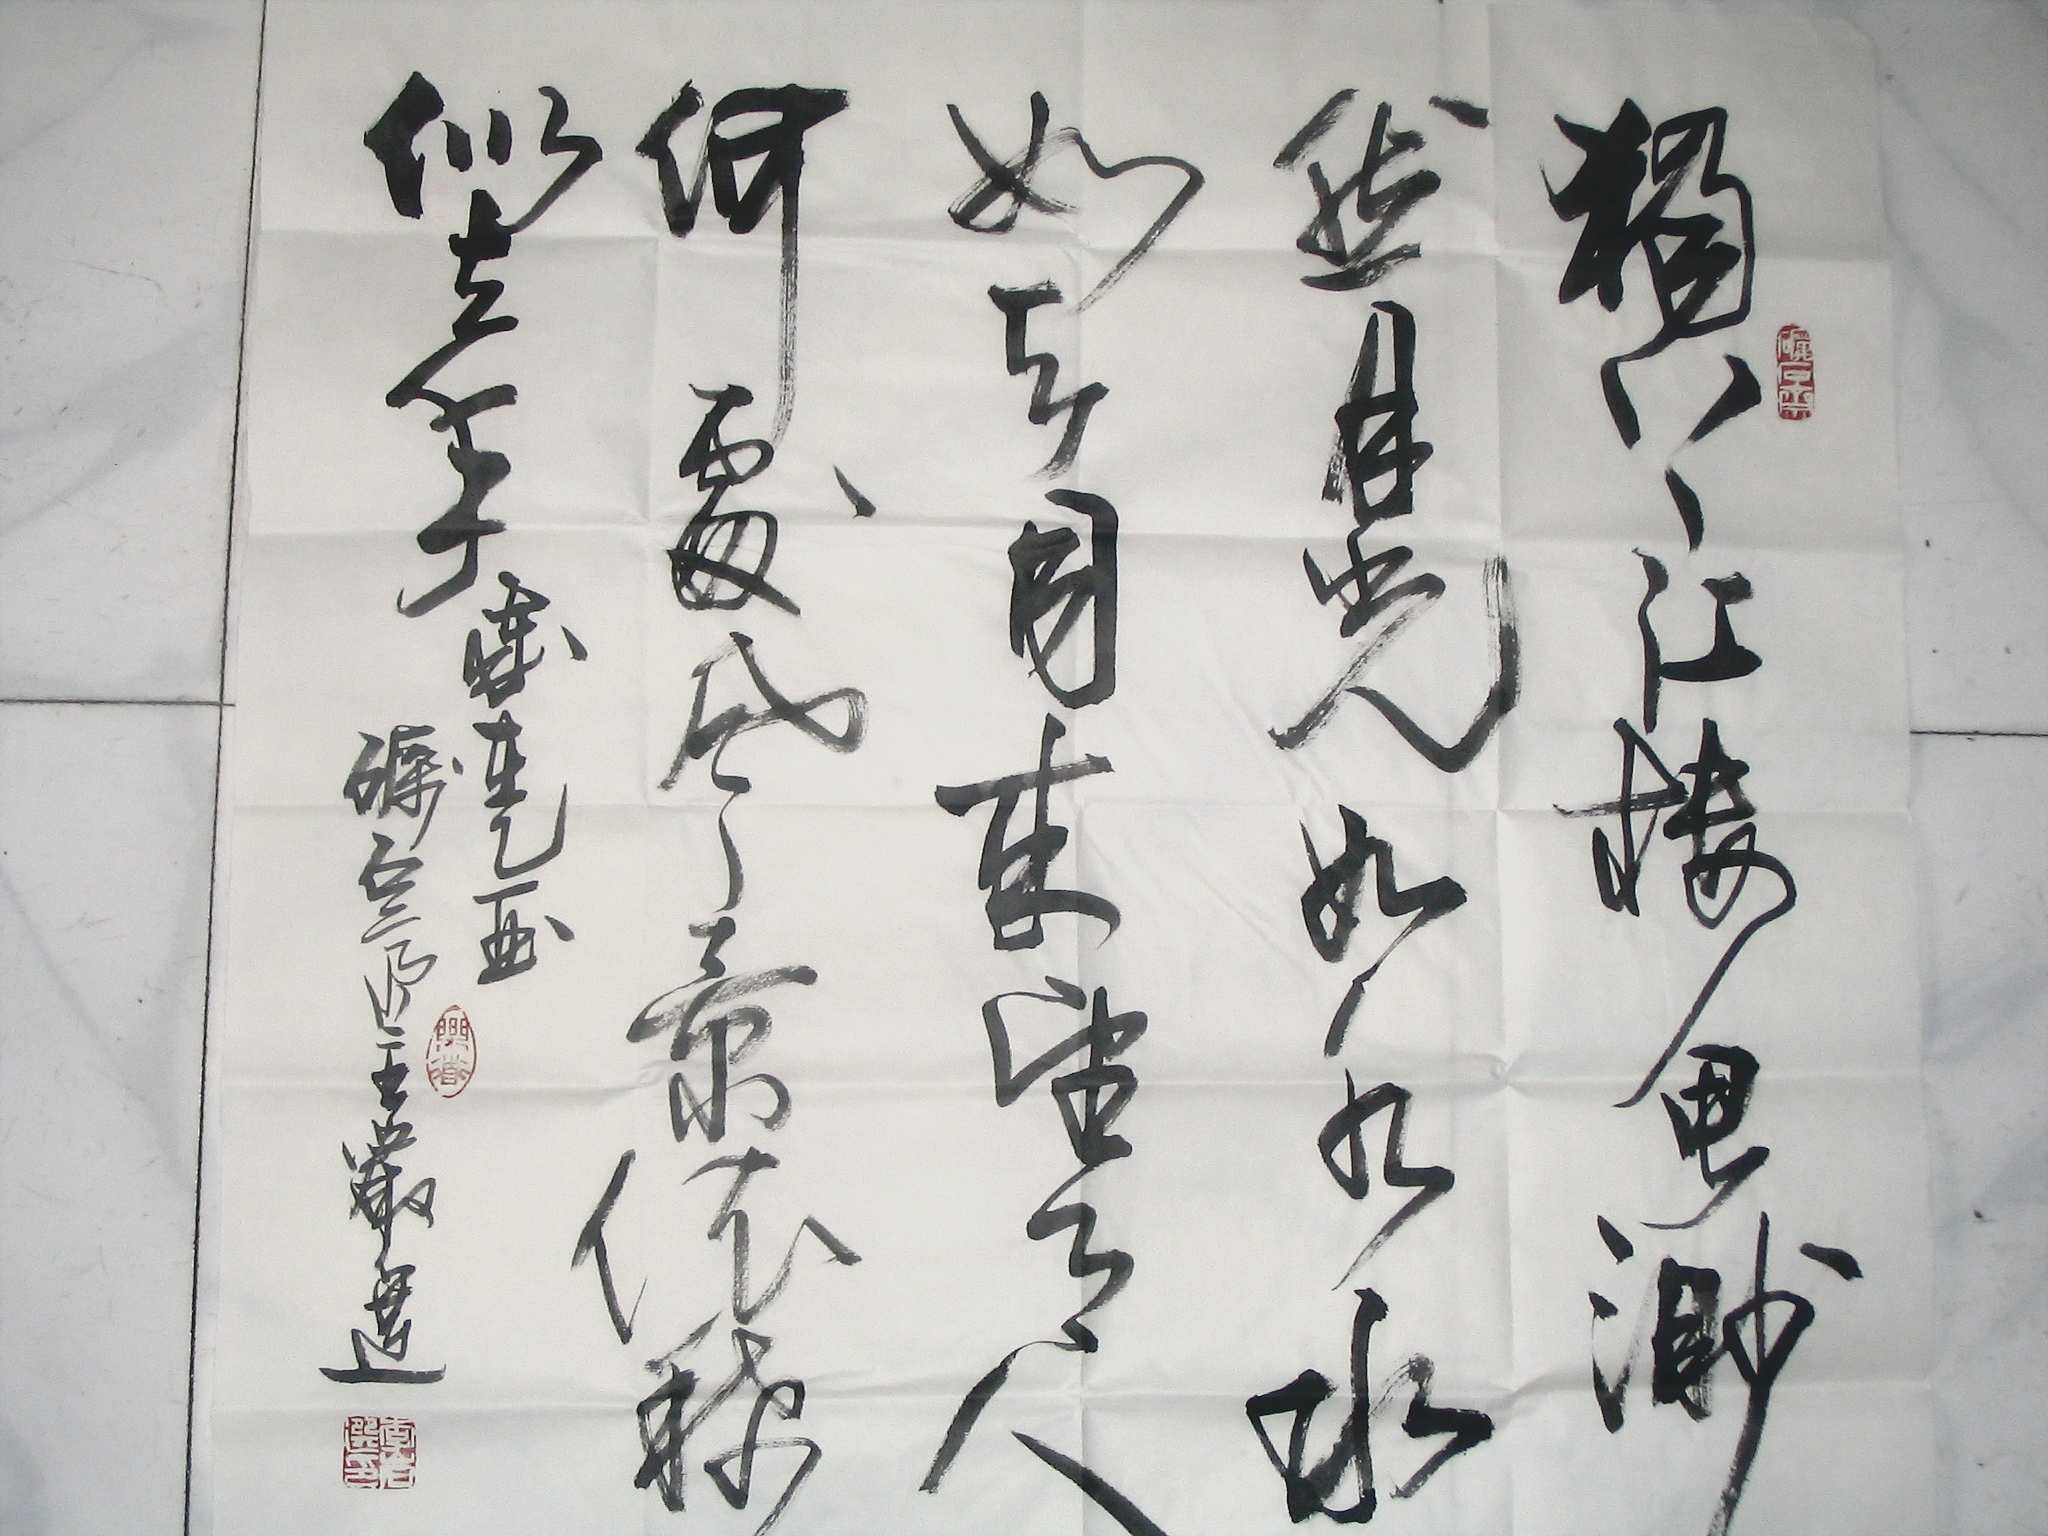 獨上江樓思渺
然月光如水水
如天同来望月人
何處風景依稀
似去年
歲在乙酉